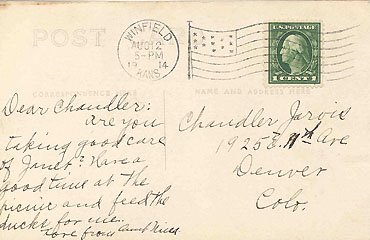 POST
WINFIELD
AUG 12
5-PM
19 14
KANS.
U.S. POSTAGE
1 CENT 1
CORRESPONDENCE
NAME AND ADDRESS HERE
Dear Chandler:
Are you
taking good care
of Janet? Have a
good time at the
picnic and feed the
ducks for me.
Love from
Chandler Jarvis
1925 E. 11th Ave
Denver
Colo.